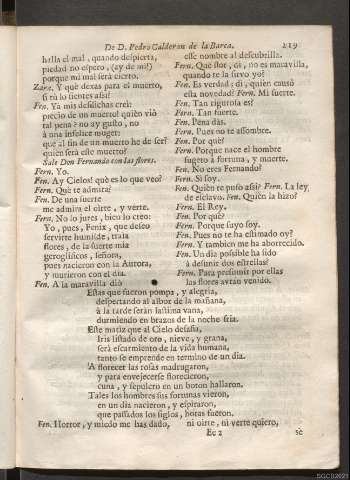 De D. Pedro Calderon de la Barca. 219
halla el mal, quando despierta,
piedad no espero, (ay de mi!)
porque mi mal será cierto.
Zara. Y què dexas para el muerto,
si tù lo sientes assi?
Fen. Ya mis desdichas creì:
precio de un muerto! quièn viò
tal pena? no ay gusto, no
à una infelice muger:
que al fin de un muerto he de ser?
quièn serà este muerto?
Sale Don Fernando con las flores.
Fern. Yo.
Fen. Ay Cielos! què es lo que veo?
Fern. Què te admira?
Fen. De una suerte
me admira el oirte, y verte.
Fern. No lo jures, bien lo creo:
Yo, pues, Fenix, que deseo
servirte humilde, traìa
flores, de la suerte mia
geroglificos, señora,
pues nacieron con la Aurora,
y murieron con el dia.
Fen. A la maravilla diò
esse nombre al descubrilla.
Fern. Què flor, dì, no es maravilla,
quando te la sirvo yo?
Fen. Es verdad: dì, quien causò
esta novedad? Fern. Mi suerte.
Fen. Tan rigurosa es?
Fern. Tan fuerte.
Fen. Pena dàs.
Fern. Pues no te assombre.
Fen. Por què?
Fern. Porque nace el hombre
sugeto à fortuna, y muerte.
Fen. No eres Fernando?
Fern. Si soy.
Fen. Quièn te puso assi? Fern. La ley
de esclavo. Fen. Quièn la hizo?
Fern. El Rey.
Fen. Por què?
Fern. Porque suyo soy.
Fen. Pues no te ha estimado oy?
Fern. Y tambien me ha aborrecido.
Fen. Un dia possible ha sido
à desunir dos estrellas?
Fern. Para presumir por ellas
las flores avràn venido.
Estas que fueron pompa, y alegria,
despertando al albor de la mañana,
à la tarde seràn lastima vana,
durmiendo en brazos de la noche fria.
Este matiz que al Cielo desafia,
Iris listado de oro, nieve, y grana,
serà escarmiento de la vida humana,
tanto se emprende en termino de un dia.
A florecer las rosas madrugaron,
y para envejecerse florecieron,
cuna, y sepulcro en un boton hallaron.
Tales los hombres sus fortunas vieron,
en un dia nacieron, y espiraron,
que passados los siglos, horas fueron.
Fen. Horror, y miedo me has dado, ni oirte, ni verte quiero,
Ee 2 se
SGCB2021